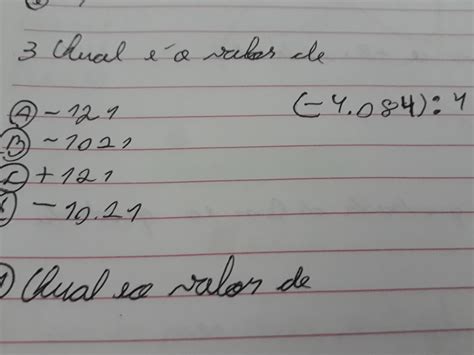 3 Qual é o valor de
(-4.084): 4
A -121
B -1021
C +121
-10.21
Qual é o valor de